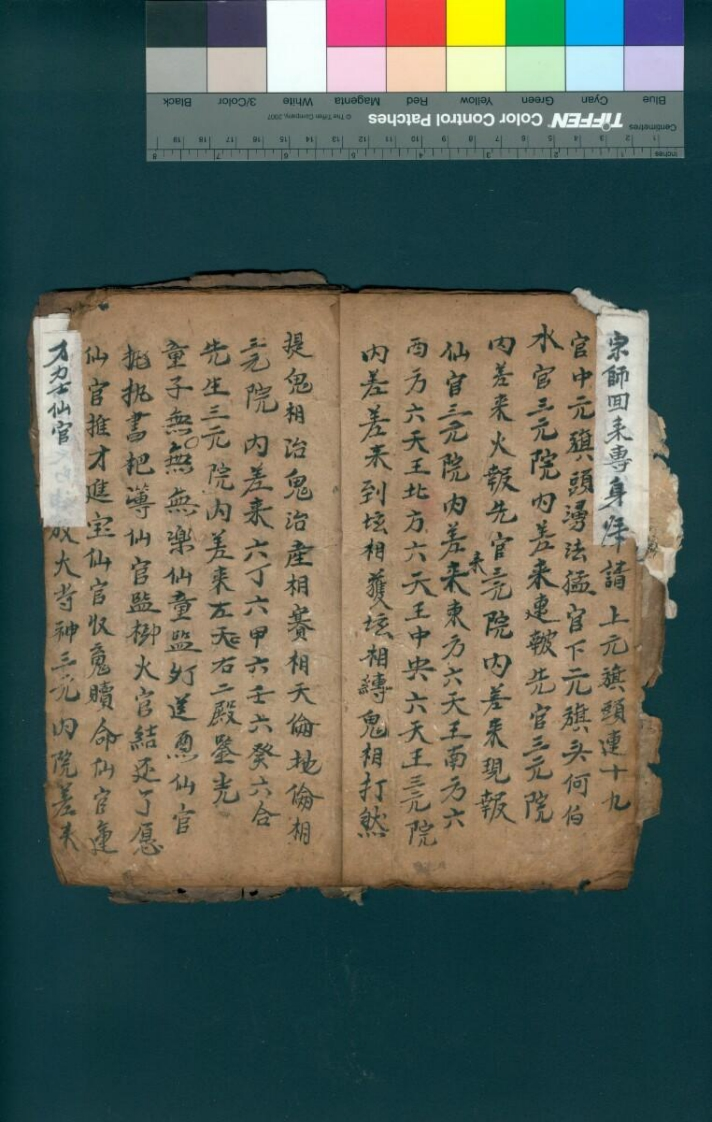 宗師回来專身歸請上元旗頭連十九
官中元旗頭湧法猛官下元旗头何伯
水官三元院内差来連報先官三元院
内差来火報先官三元院内差来現報
仙官三元院内差来東方六天王南方六
来
西方六天王北方六天王中央六天王三元院
内差差来到坛相坛相縛鬼相打然
提鬼相治鬼治產相賽相天倫地倫相
三元院内差来六丁六甲六壬六癸六合
先生三元院内差来左天右二殿鑒光
童子無無無樂仙童監灯送仙官
執書把薄仙官監柳火官結还了愿
仙官推才進宝仙官收魂贖命仙官連
才力士仙官
大神三元内院差来
Centimetres
Inches
TIFFEN Color Control Patches
© The Tiffen Company, 2007
Blue
Cyan
Green
Yellow
Red
Magenta
White
3/Color
Black